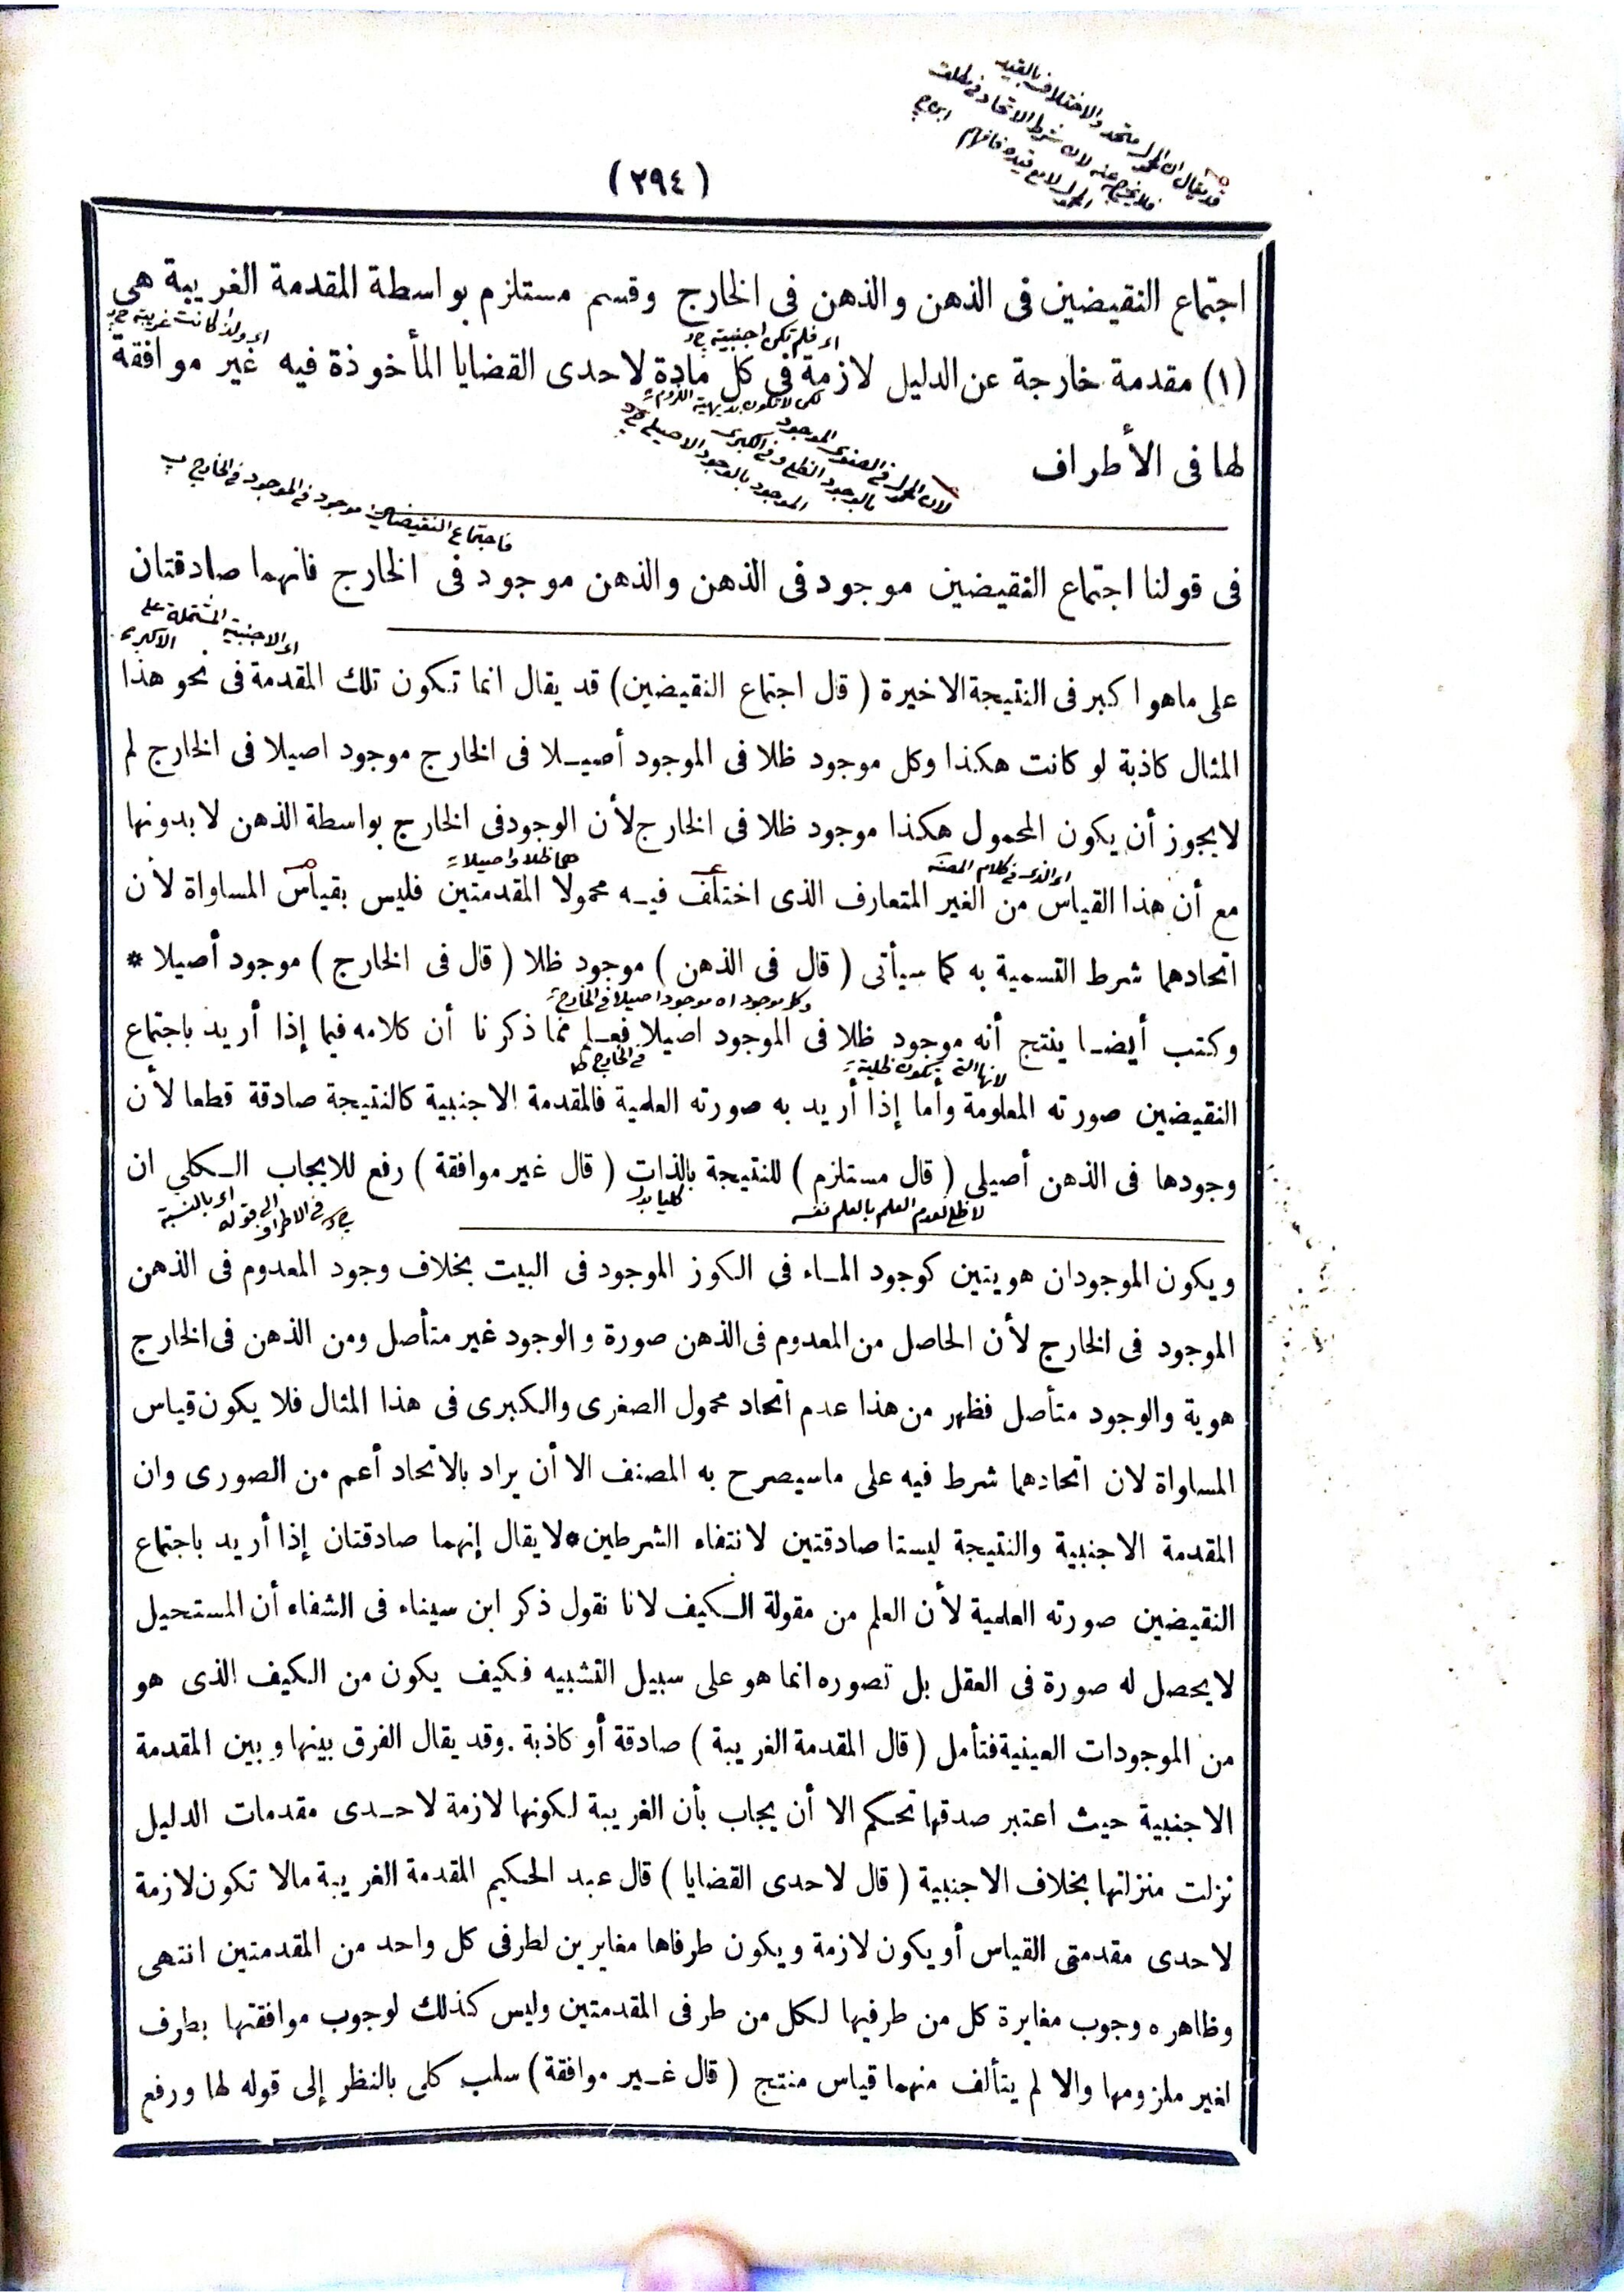 قد يقال ان المحمول متحد والاختلاف بالقيد
فلا يخرج عنه لان شرط الاتحاد في مطلق
المحمول لا مع قيده فافهم
(٢٩٤)
اجتماع النقيضين فى الذهن والذهن فى الخارج وقسم مستلزم بواسطة المقدمة الغريبة هى
اى ولذا كانت غريبة
اى فلم تكن اجنبية
(١) مقدمة خارجة عن الدليل لازمة فى كل مادة لاحدى القضايا المأخوذة فيه غير موافقة
لكن لا تكون بديهية اللزوم
لها فى الأطراف
لان المحمول فى الصغرى الموجود
بالوجود الظلى وفى الكبرى
الموجود بالوجود الاصيلى
فاجتماع النقيضين موجود فى الموجود فى الخارج
فى قولنا اجتماع النقيضين موجود فى الذهن والذهن موجود فى الخارج فانهما صادقتان
اى الاجنبية المشتملة على
الاكبر
على ماهو اكبر فى النتيجة الاخيرة ( قال اجتماع النقيضين) قد يقال انما تكون تلك المقدمة فى نحو هذا
المثال كاذبة لو كانت هكذا وكل موجود ظلا فى الموجود أصيلا فى الخارج موجود اصيلا فى الخارج لم
لايجوز أن يكون المحمول هكذا موجود ظلا فى الخارج لأن الوجود فى الخارج بواسطة الذهن لا بدونها
اى الذى فى كلام المصنف
هما ظلا واصيلا
مع أن هذا القياس من الغير المتعارف الذى اختلف فيه محمولا المقدمتين فليس بقياس المساواة لأن
اتحادهما شرط التسمية به كما سيأتى ( قال فى الذهن ) موجود ظلا ( قال فى الخارج ) موجود أصيلا *
وكل موجود اه موجود اصيلا فى الخارج
وكتب أيضا ينتج أنه موجود ظلا فى الموجود اصيلا فعلم مما ذكرنا أن كلامه فيما إذا أريد باجتماع
لانها التى تكون ظلية
فى الخارج
النقيضين صورته المعلومة وأما إذا أريد به صورته العلمية فالمقدمة الاجنبية كالنتيجة صادقة قطعا لأن
وجودها فى الذهن أصيلى ( قال مستلزم ) للنتيجة بالذات ( قال غير موافقة ) رفع للايجاب الكلى ان
لا ظلى لعدم العلم بالعلم نفسه
اى بالنسبة
الى قوله
فى الاطراف
ويكون الموجودان هويتين كوجود الماء فى الكوز الموجود فى البيت بخلاف وجود المعدوم فى الذهن
الموجود فى الخارج لأن الحاصل من المعدوم فى الذهن صورة والوجود غير متأصل ومن الذهن فى الخارج
هوية والوجود متأصل فظهر من هذا عدم اتحاد محمول الصغرى والكبرى فى هذا المثال فلا يكون قياس
المساواة لان اتحادهما شرط فيه على ماسيصرح به المصنف الا أن يراد بالاتحاد أعم من الصورى وان
المقدمة الاجنبية والنتيجة ليستا صادقتين لانتفاء الشرطين * لايقال إنهما صادقتان إذا أريد باجتماع
النقيضين صورته العلمية لأن العلم من مقولة الكيف لانا نقول ذكر ابن سيناء فى الشفاء أن المستحيل
لايحصل له صورة فى العقل بل تصوره انما هو على سبيل التشبيه فكيف يكون من الكيف الذى هو
من الموجودات العينية فتأمل ( قال المقدمة الغريبة ) صادقة أو كاذبة . وقد يقال الفرق بينها وبين المقدمة
الاجنبية حيث اعتبر صدقها تحكم الا أن يجاب بأن الغريبة لكونها لازمة لاحدى مقدمات الدليل
نزلت منزلتها بخلاف الاجنبية ( قال لاحدى القضايا ) قال عبد الحكيم المقدمة الغريبة مالا تكون لازمة
لاحدى مقدمتى القياس أو يكون لازمة ويكون طرفاها مغايرين لطرفى كل واحد من المقدمتين انتهى
وظاهره وجوب مغايرة كل من طرفيها لكل من طرفى المقدمتين وليس كذلك لوجوب موافقتها بطرف
لغير ملزومها والا لم يتألف منهما قياس منتج ( قال غير موافقة ) سلب كلى بالنظر إلى قوله لها ورفع